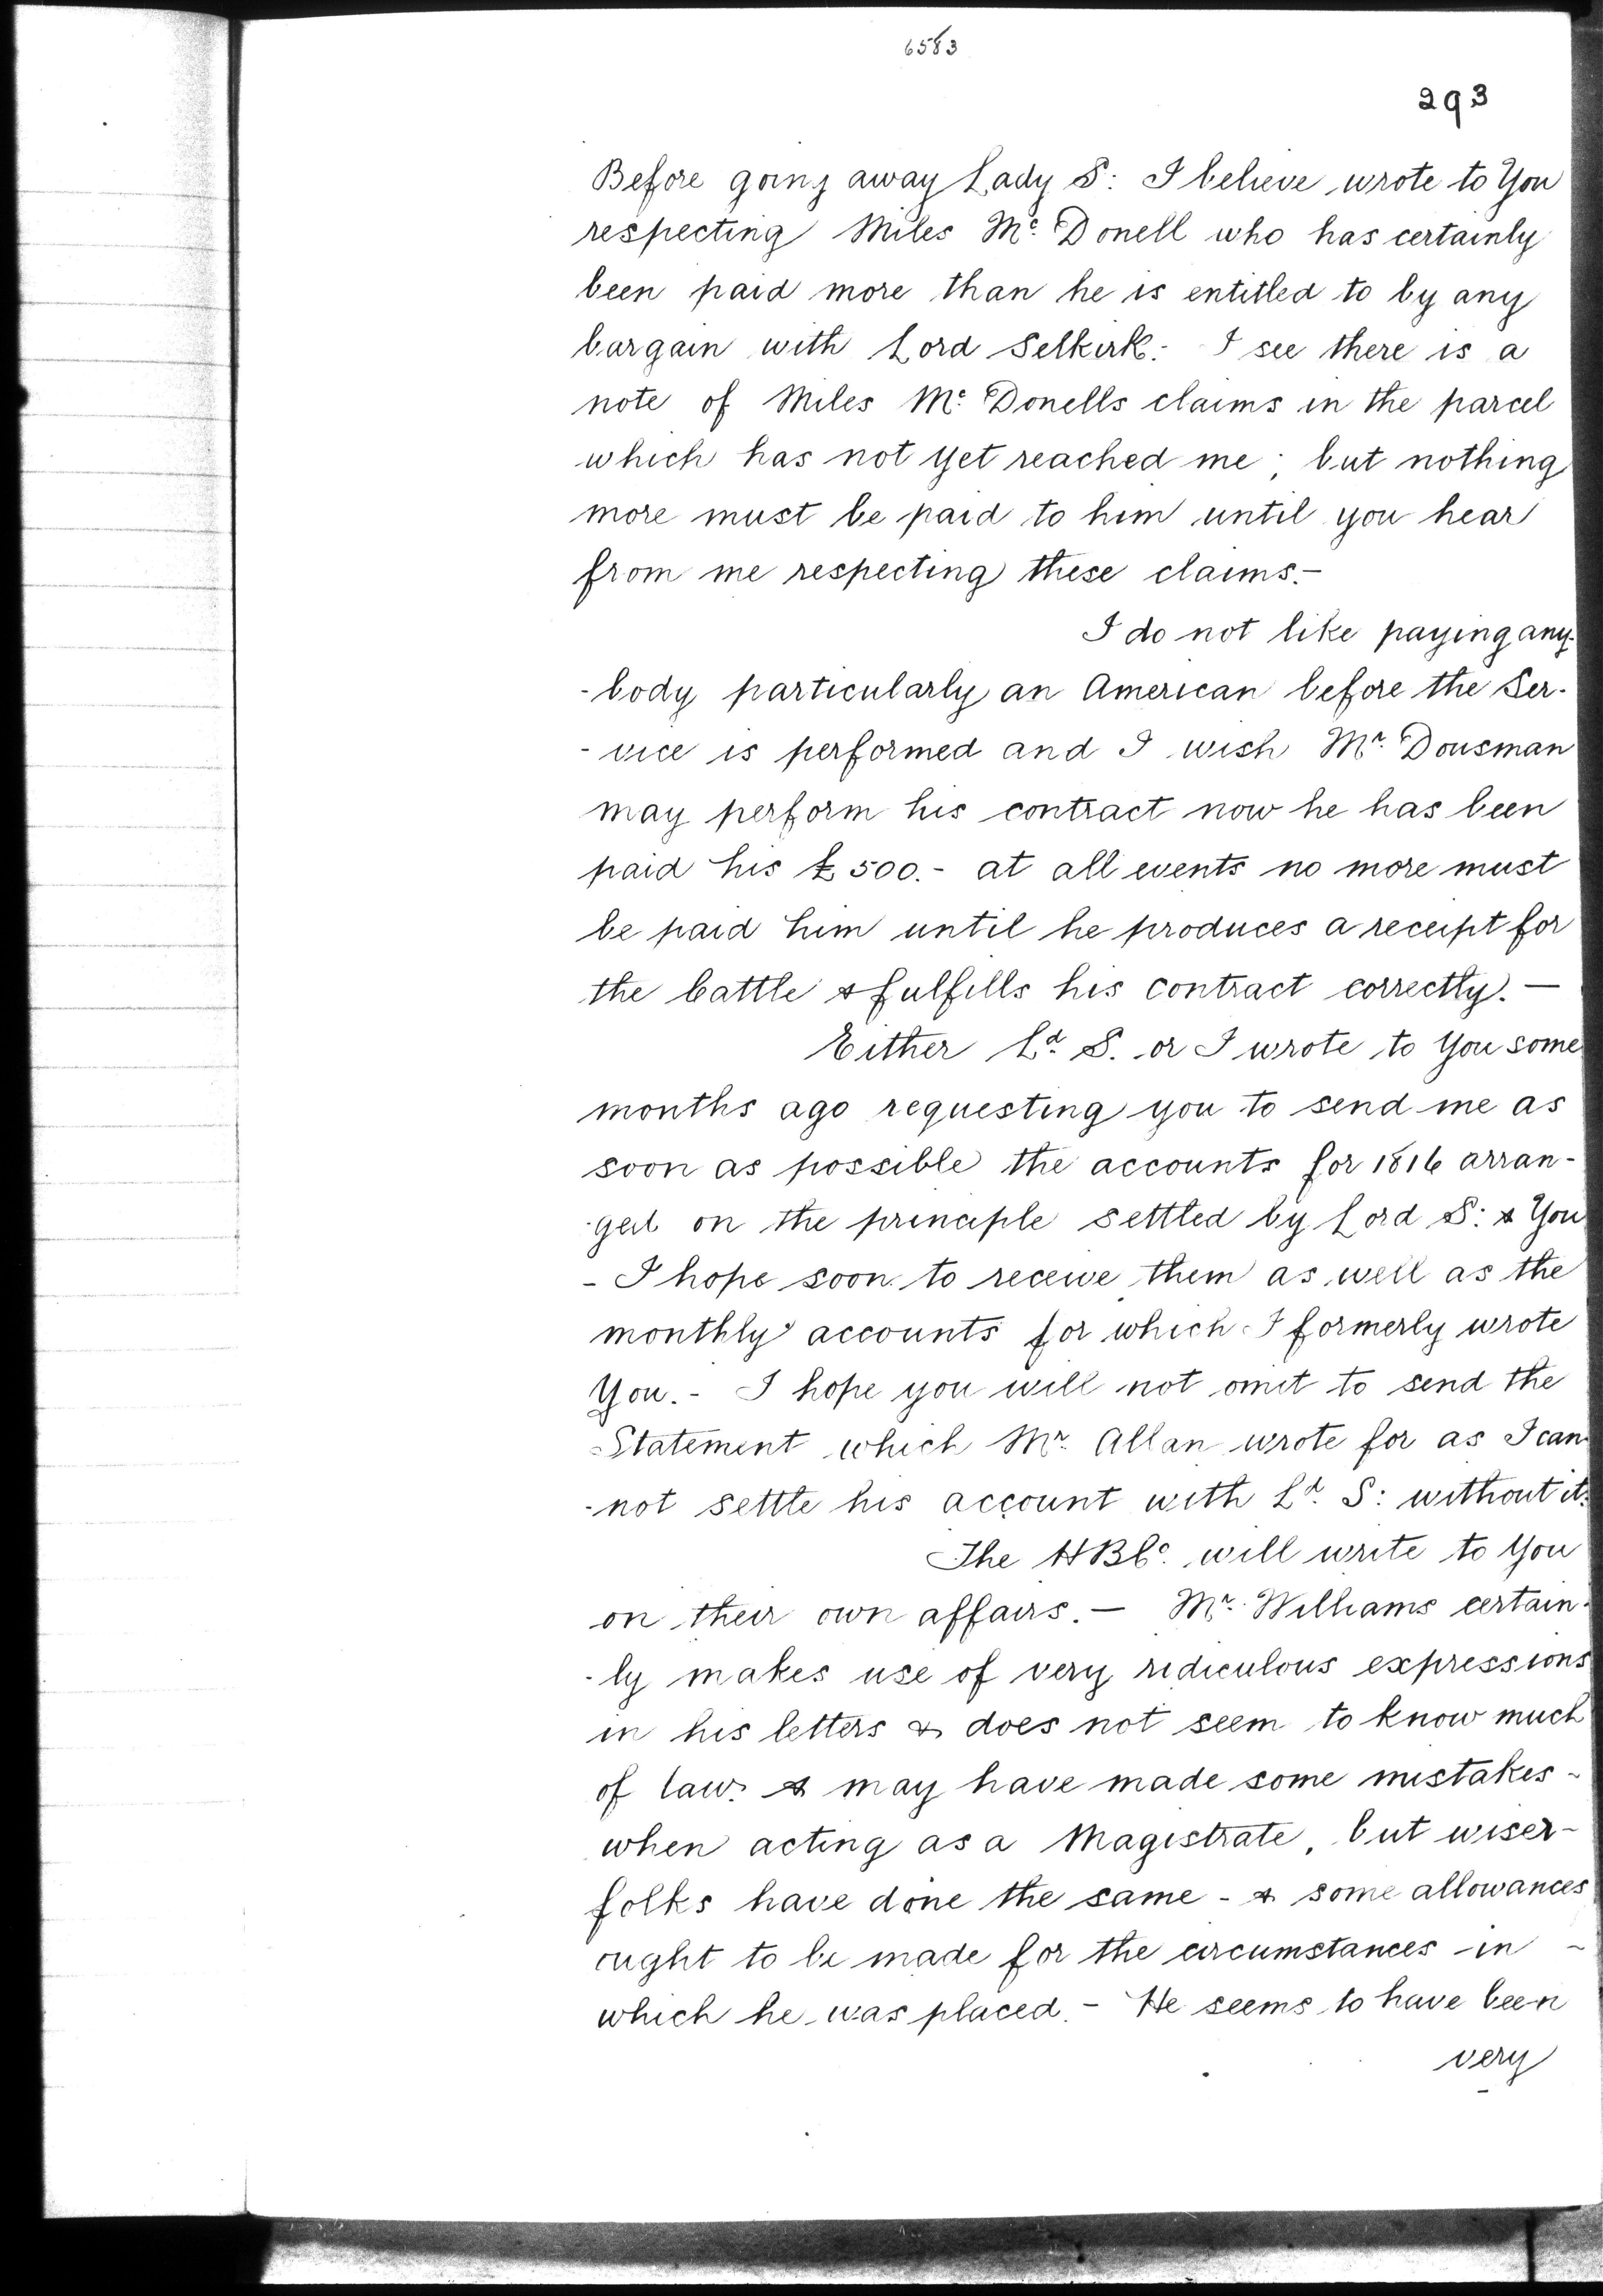 6583
293
Before going away Lady S: I believe wrote to You
respecting Miles Mc. Donell who has certainly
been paid more than he is entitled to by any
bargain with Lord Selkirk.- I see there is a
note of Miles Mc. Donells claims in the parcel
which has not yet reached me; but nothing
more must be paid to him until you hear
from me respecting these claims.-
I do not like paying any-
-body particularly an American before the Ser-
-vice is performed and I wish Mr. Dousman
may perform his contract now he has been
paid his £500.- at all events no more must
be paid him until he produces a receipt for
the Cattle & fulfills his contract correctly. —
Either Ld. S. or I wrote to You some
months ago requesting you to send me as
soon as possible the accounts for 1816 arran-
-ged on the principle settled by Lord S: & You
- I hope soon to receive them as well as the
monthly accounts for which I formerly wrote
You.- I hope you will not omit to send the
Statement which Mr. Allan wrote for as I can-
-not settle his account with Ld. S: without it.
The HBCo. will write to You
on their own affairs. — Mr. Williams certain-
-ly makes use of very ridiculous expressions
in his letters & does not seem to know much
of law. & may have made some mistakes -
when acting as a Magistrate, but wiser-
folks have done the same - & some allowances
ought to be made for the circumstances in -
which he was placed. - He seems to have been
very